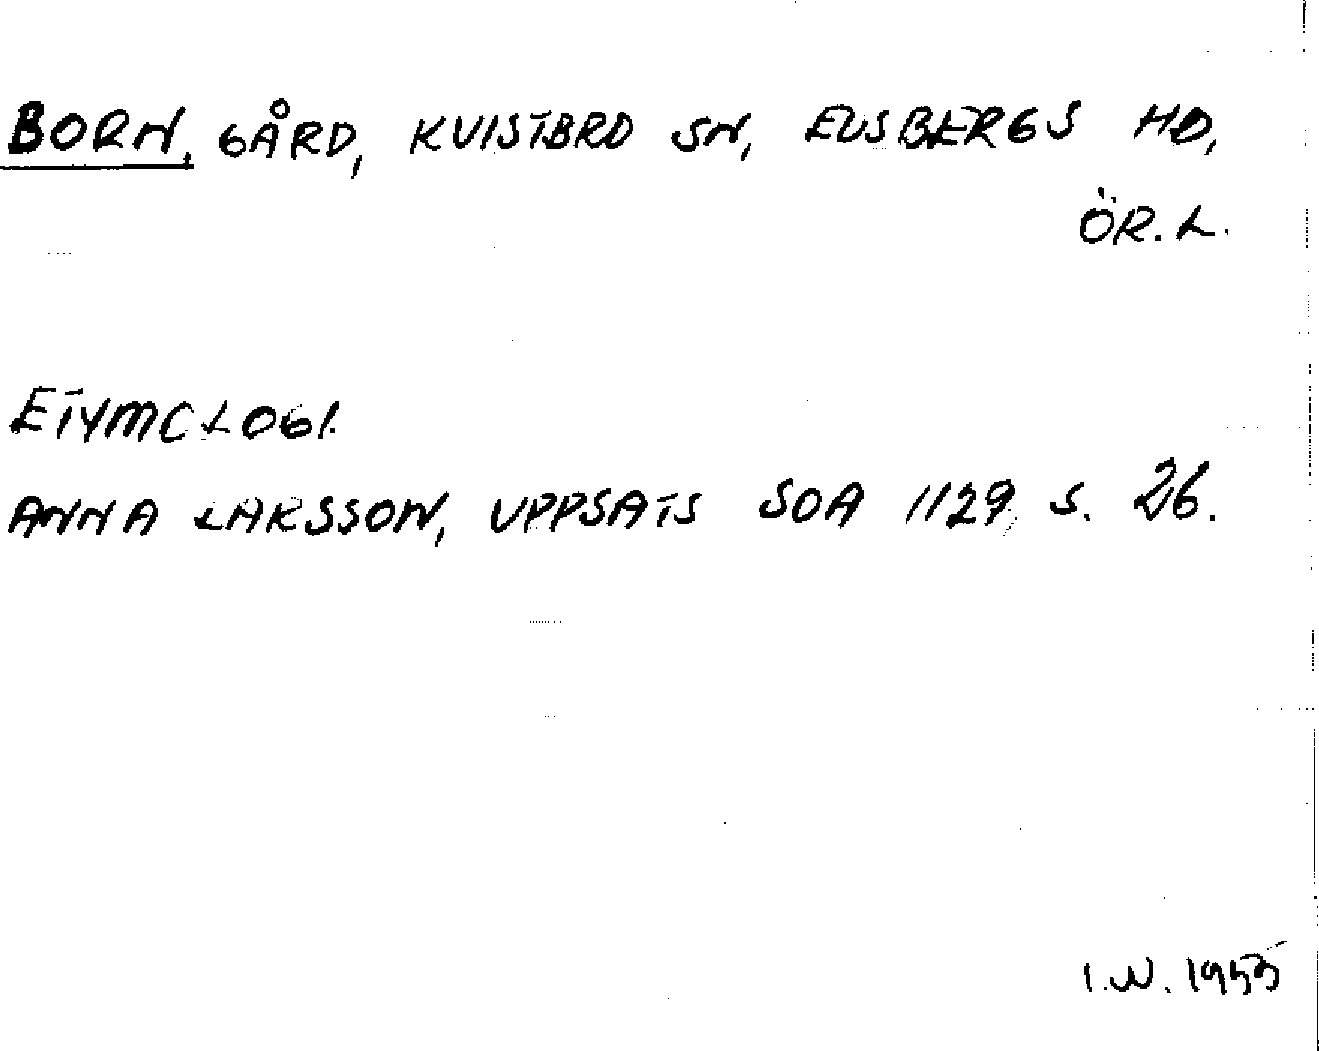 BORN, GÅRD, KVISTBRO SN, EDSBERGS HD,
ÖR. L.
ETYMOLOGI.
ANNA LARSSON, UPPSATS SOA 1129, S. 26.
I.W. 1955